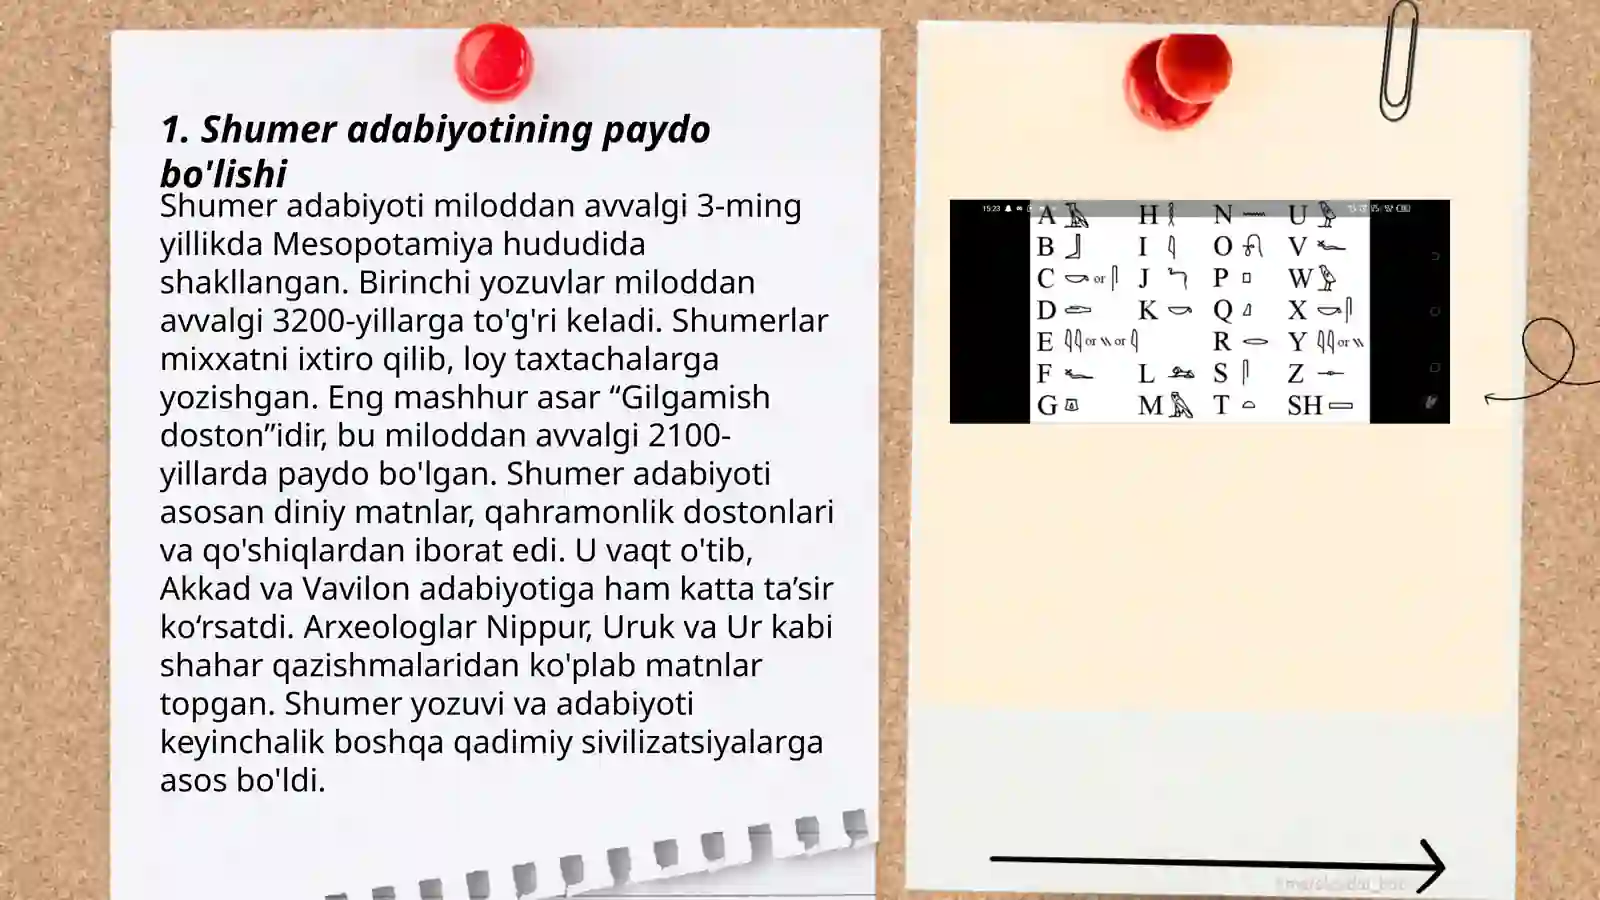 1. Shumer adabiyotining paydo
bo'lishi
Shumer adabiyoti miloddan avvalgi 3-ming
yillikda Mesopotamiya hududida
shakllangan. Birinchi yozuvlar miloddan
avvalgi 3200-yillarga to'g'ri keladi. Shumerlar
mixxatni ixtiro qilib, loy taxtachalarga
yozishgan. Eng mashhur asar “Gilgamish
doston”idir, bu miloddan avvalgi 2100-
yillarda paydo bo'lgan. Shumer adabiyoti
asosan diniy matnlar, qahramonlik dostonlari
va qo'shiqlardan iborat edi. U vaqt o'tib,
Akkad va Vavilon adabiyotiga ham katta ta’sir
ko‘rsatdi. Arxeologlar Nippur, Uruk va Ur kabi
shahar qazishmalaridan ko'plab matnlar
topgan. Shumer yozuvi va adabiyoti
keyinchalik boshqa qadimiy sivilizatsiyalarga
asos bo'ldi.
15:23
A H N U
B I O V
C or J P W
D K Q X
E or or R Y or
F L S Z
G M T SH